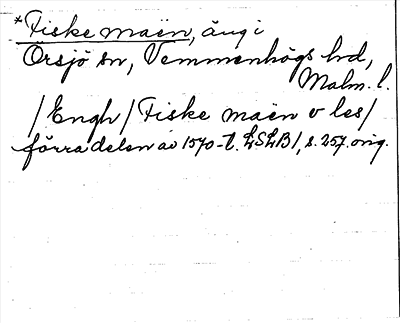 *Fiske maën, äng i
Örsjö sn, Vemmenhögs hd,
Malm. l.
/Engh/ Fiske maën v les/
förra delen av 1570-t. LSLB/, s. 257. orig.